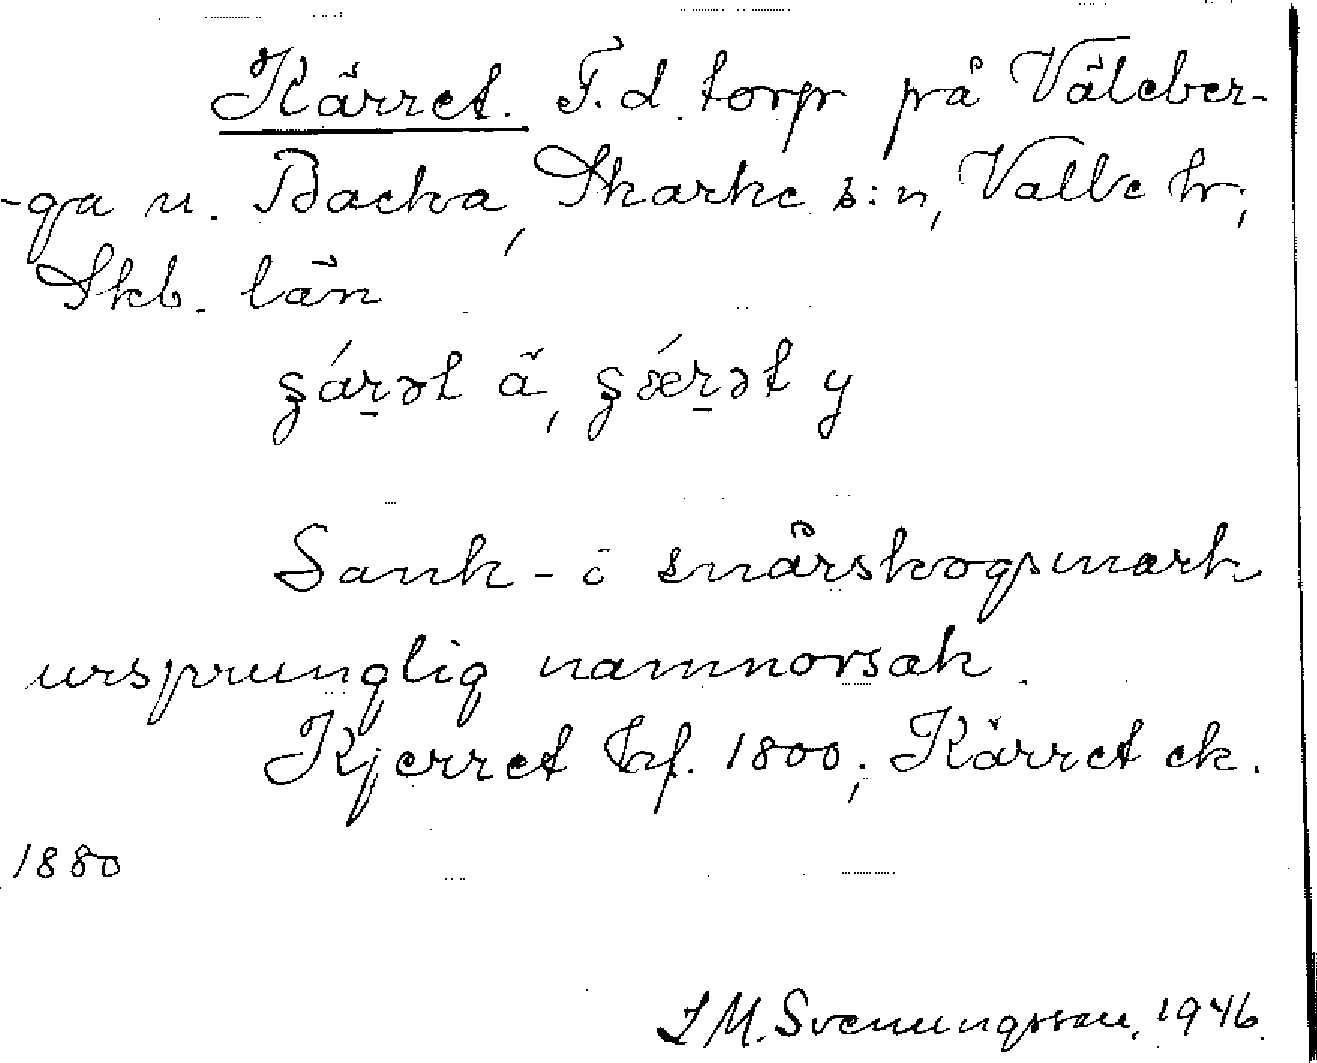 Kärret. F.d. torp på Väleber-
-ga u. Backa, Skarke s:n, Valle hr;
Skb. län
ʂárət ä, ʂǽrət y
Sank- o snårskogsmark
ursprunglig namnorsak.
Kjerret hf. 1800; Kärret ek.
1880
I M. Svenungsson, 1946.